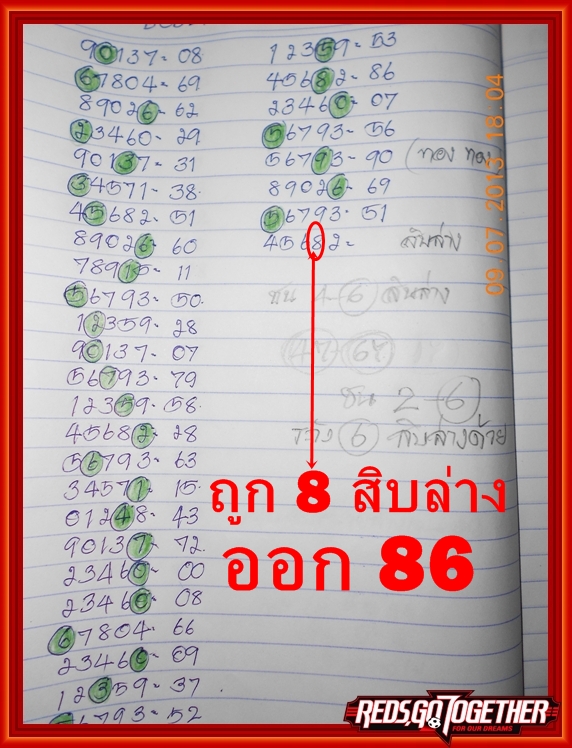 90137- 08
67804- 69
89026- 62
23460- 29
90137- 31
34571- 38.
45682- 51
89026- 60
78915- 11
56793- 50.
12359- 28
90137- 07
56793- 79
12359- 58.
45682- 28
56793- 63
34571- 15.
01248- 43
90137- 72
23460- 00
23460- 08
67804- 66
23460- 09
12359- 37
6793- 52
12359- 53
45682- 86
23460- 07
56793- 56
56793- 90 (ทอง ทอง
89026- 69
56793- 51
45682= สิบล่าง
ชน 2-6 สิบล่าง
47 - 67
ชน 2-6
ระวัง 6 สิบล่างด้วย
ถูก 8 สิบล่าง
ออก 86
09.07.2013 18:04
REDS,GOTOGETHER
FOR OUR DREAMS